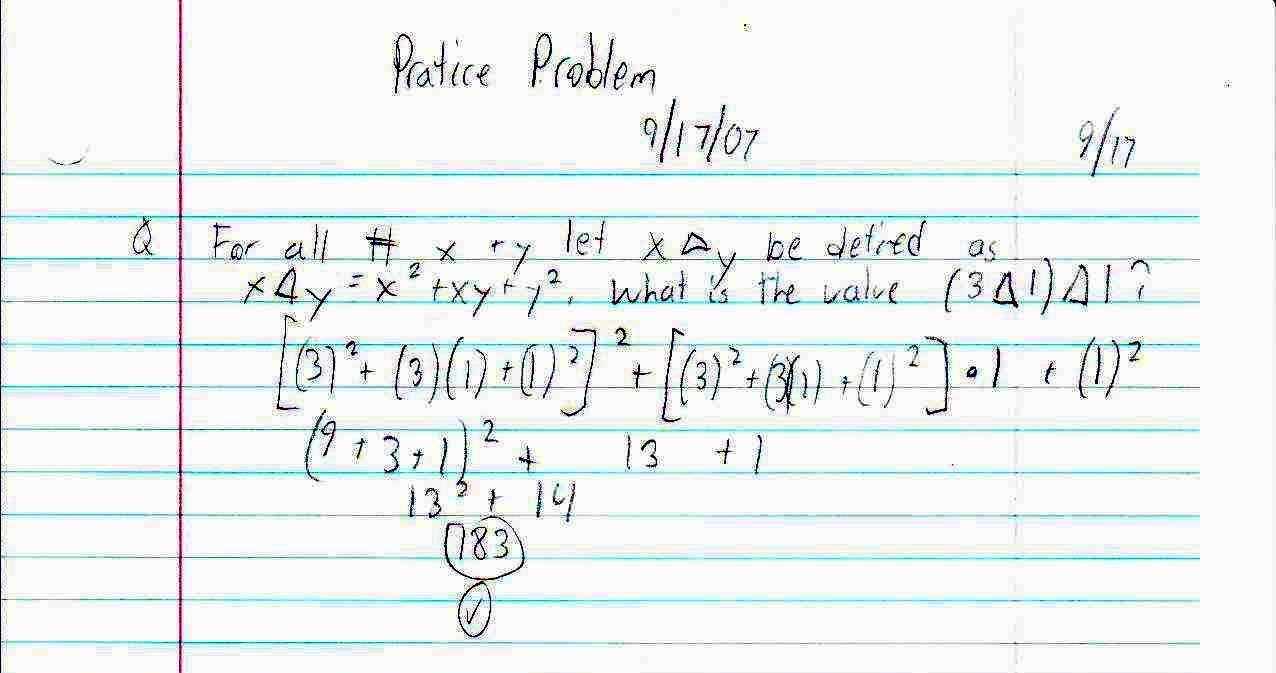 Pratice Problem
9/17/07
9/17
Q For all # x + y let x Δ y be defired as
x Δ y = x² + xy + y². What is the value (3 Δ 1) Δ 1?
[(3)² + (3)(1) + (1)²]² + [(3)² + (3)(1) + (1)²] • 1 + (1)²
(9 + 3 + 1)² + 13 + 1
13² + 14
183
✓